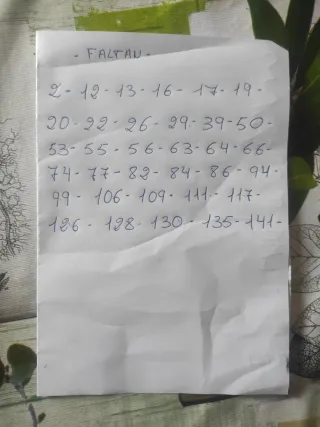 - FALTAN -
2 - 12 - 13 - 16 - 17 - 19 -
20 - 22 - 26 - 29 - 39 - 50 -
53 - 55 - 56 - 63 - 64 - 66 -
74 - 77 - 82 - 84 - 86 - 94 -
99 - 106 - 109 - 111 - 117 -
126 - 128 - 130 - 135 - 141 -